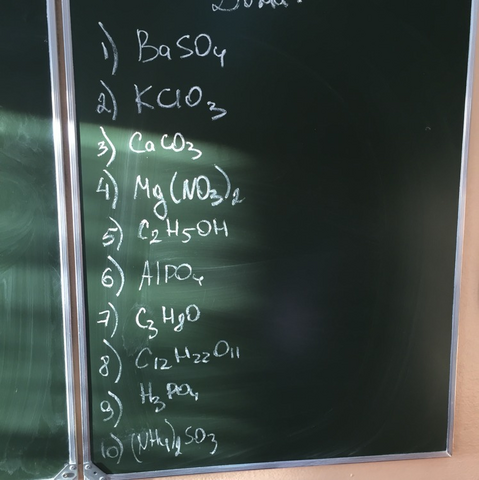 1) BaSO4
2) KClO3
3) CaCO3
4) Mg(NO3)2
5) C2H5OH
6) AlPO4
7) C3H8O
8) C12H22O11
9) H3PO4
10) (NH4)2SO3